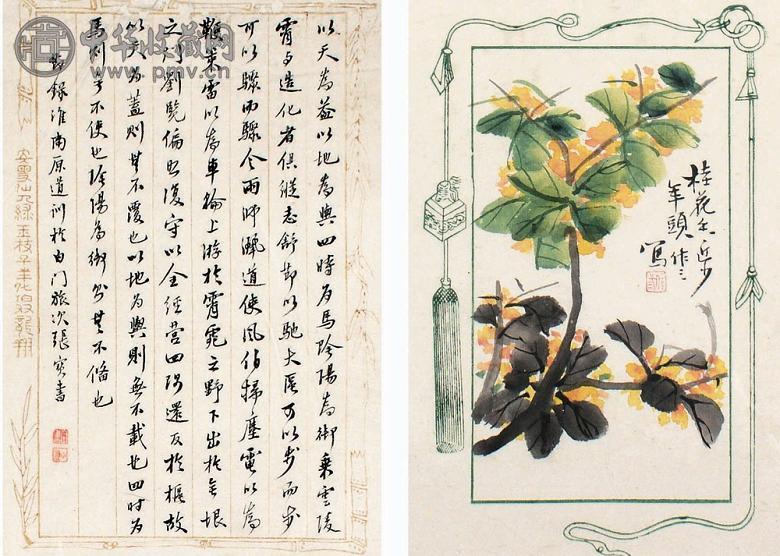 中华收藏网
www.pmv.cn
以天為蓋以地為輿四時為馬陰陽為御乘雲陵
霄与造化者俱縱志舒節以馳大區可以步而步
可以驟而驟令雨師灑道使風伯掃塵電以為
鞭策雷以為車輪上游於霄雿之野下出於無垠
之門劉覽偏照復守以全經營四隅還反於樞故
以天為蓋則無不覆也以地為輿則無不載也四時為
馬則無不使也陰陽為御則無不備也
節錄淮南原道訓於白門旅次張書
桂花香近少
年頭
寫